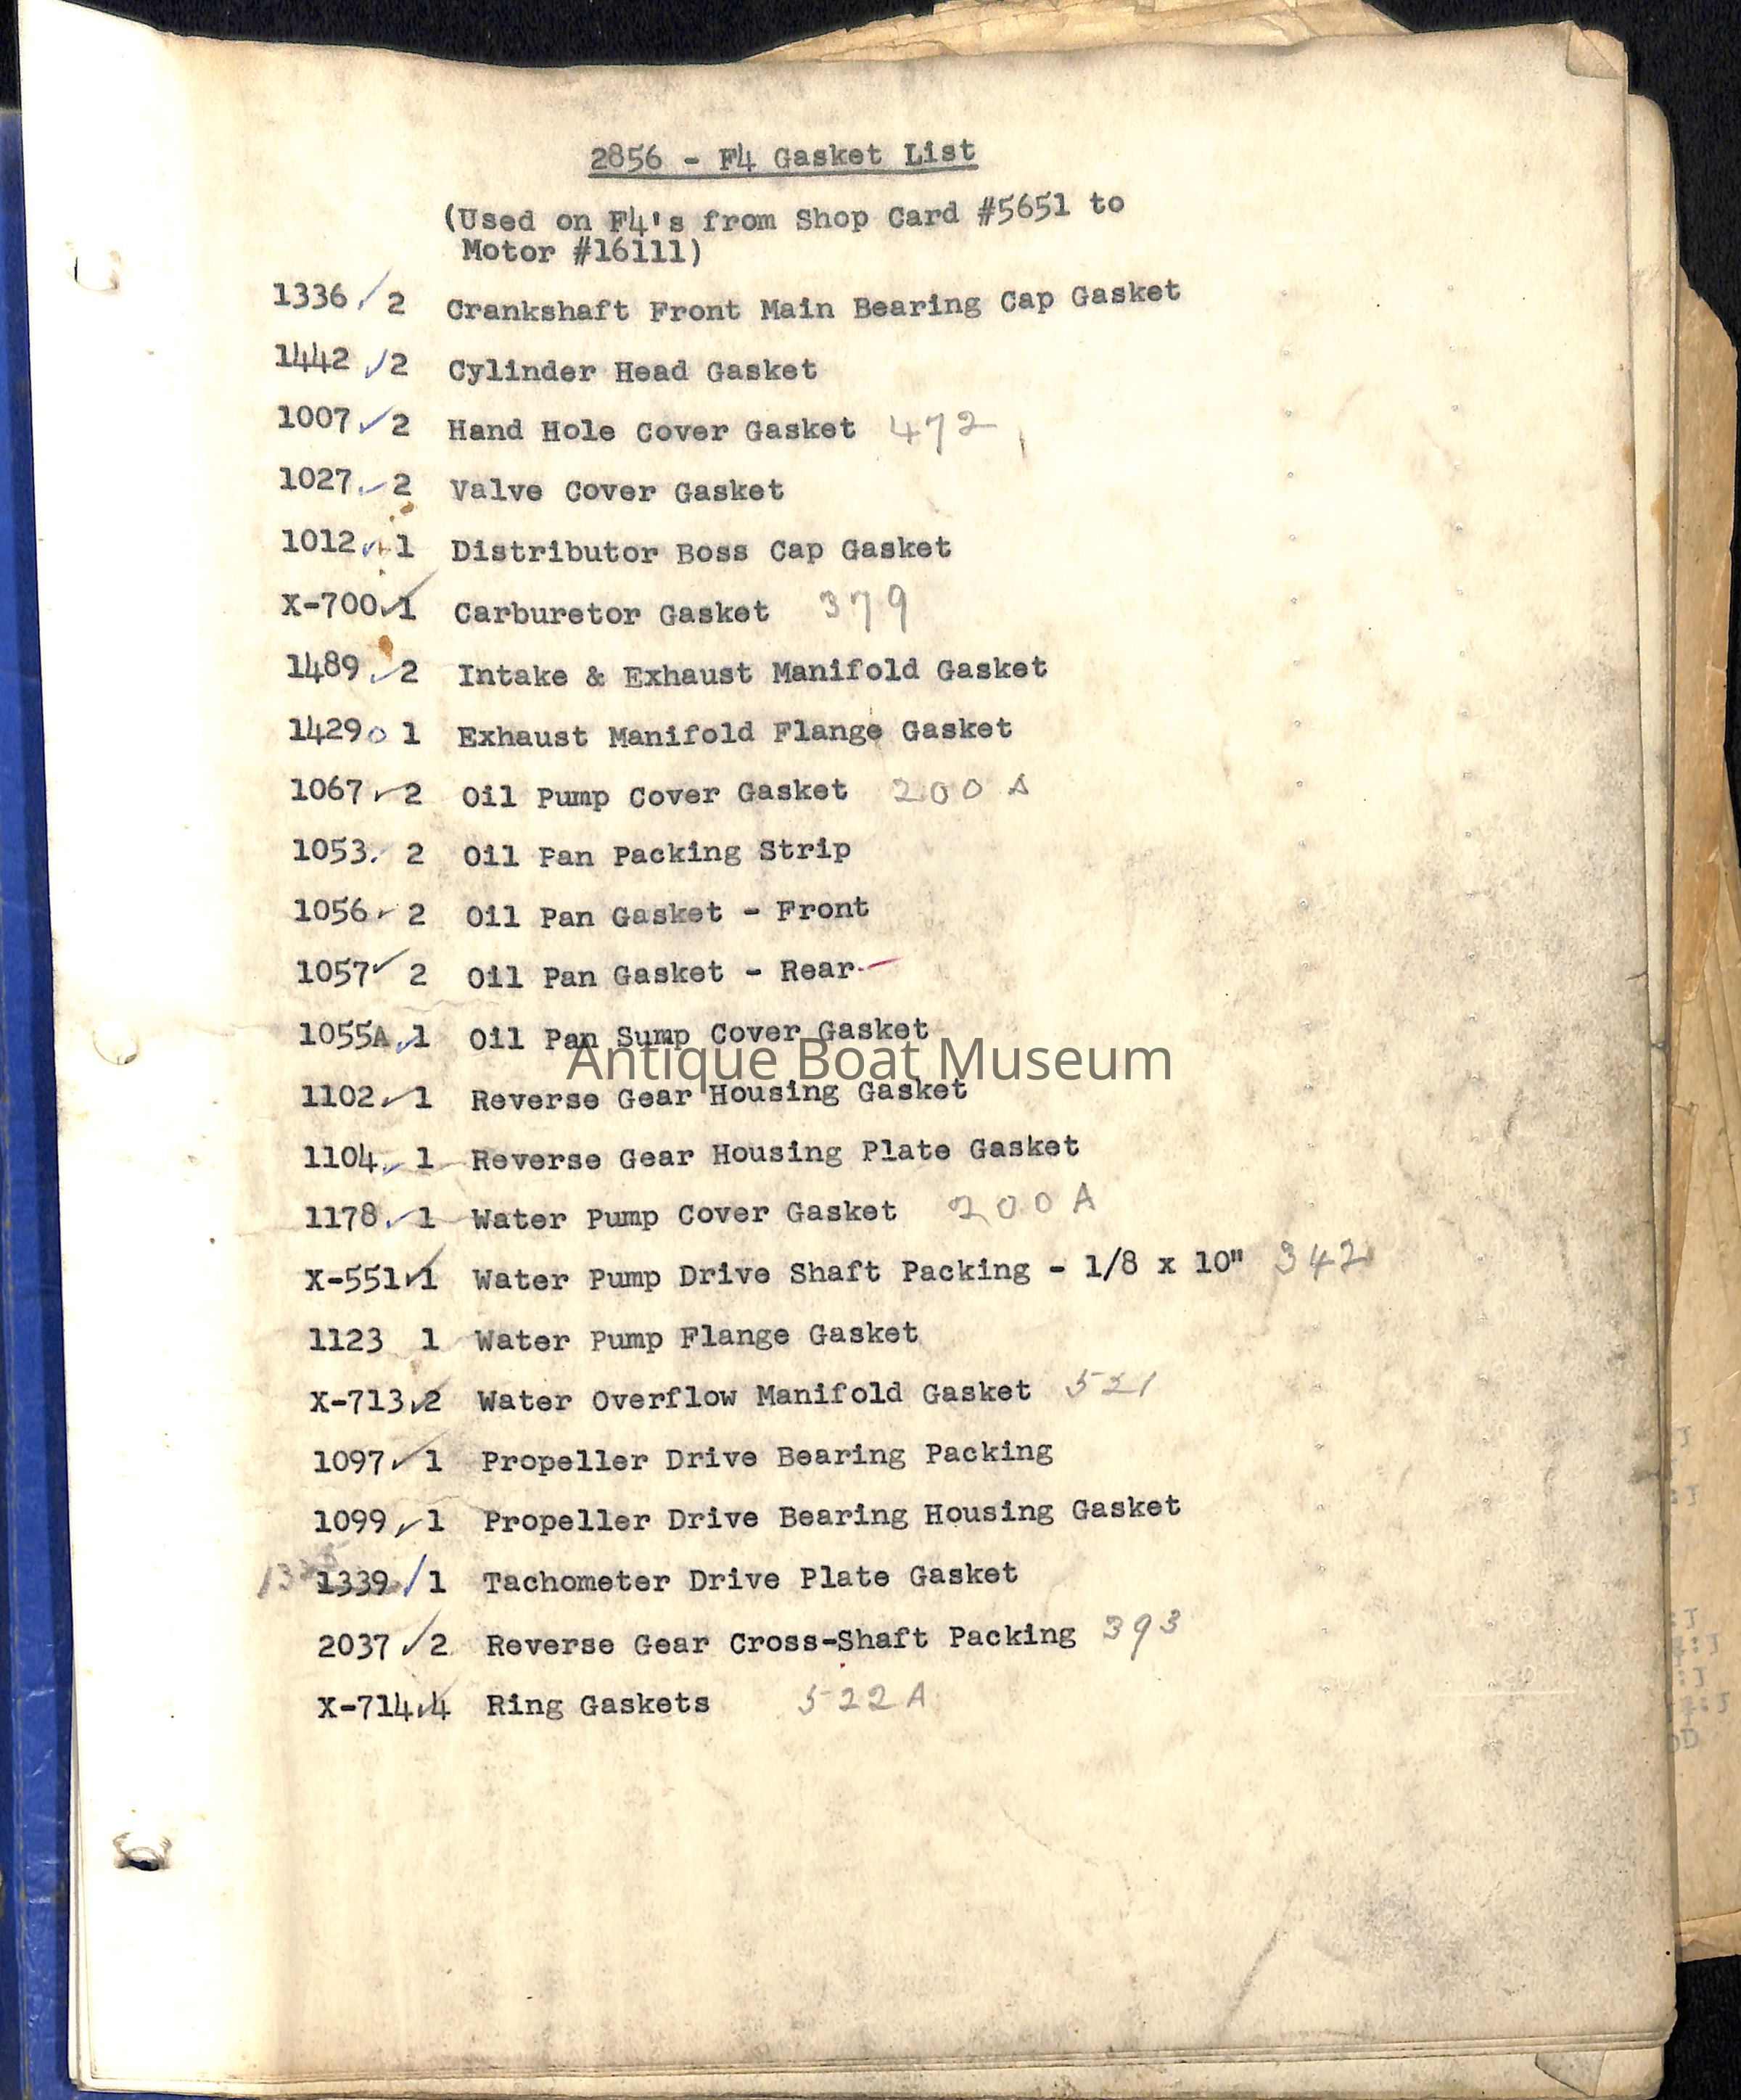 2856 - F4 Gasket List
(Used on F4's from Shop Card #5651 to
Motor #16111)
1336 2 Crankshaft Front Main Bearing Cap Gasket
1442 2 Cylinder Head Gasket
1007 2 Hand Hole Cover Gasket 472
1027 2 Valve Cover Gasket
1012 1 Distributor Boss Cap Gasket
X-700 1 Carburetor Gasket 379
1489 2 Intake & Exhaust Manifold Gasket
1429 1 Exhaust Manifold Flange Gasket
1067 2 Oil Pump Cover Gasket 200 A
1053 2 Oil Pan Packing Strip
1056 2 Oil Pan Gasket - Front
1057 2 Oil Pan Gasket - Rear
1055A 1 Oil Pan Sump Cover Gasket
Antique Boat Museum
1102 1 Reverse Gear Housing Gasket
1104 1 Reverse Gear Housing Plate Gasket
1178 1 Water Pump Cover Gasket 200 A
X-551 1 Water Pump Drive Shaft Packing - 1/8 x 10" 342
1123 1 Water Pump Flange Gasket
X-713 2 Water Overflow Manifold Gasket 521
1097 1 Propeller Drive Bearing Packing
1099 1 Propeller Drive Bearing Housing Gasket
1339 1 Tachometer Drive Plate Gasket
2037 2 Reverse Gear Cross-Shaft Packing 393
X-714 4 Ring Gaskets 522A